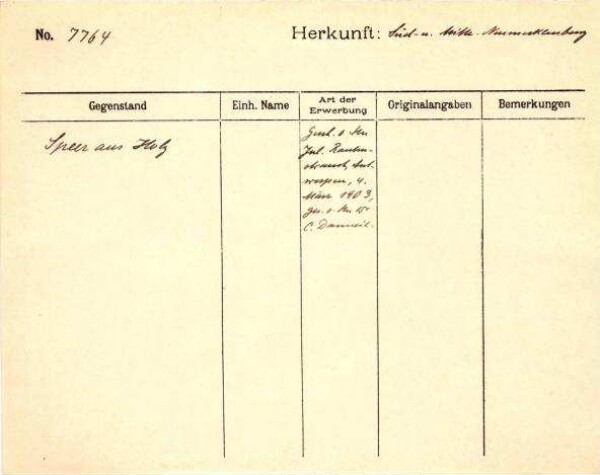 No. 7764
Herkunft: Süd- u. Mittl. Neumecklenburg
Gegenstand
Einh. Name
Art der Erwerbung
Originalangaben
Bemerkungen
Speer aus Holz
Gesch. v. Hrn
Jul. Rauten-
strauch, Ant-
werpen, 4.
März 1903,
ges. v. Hrn
C. Damm